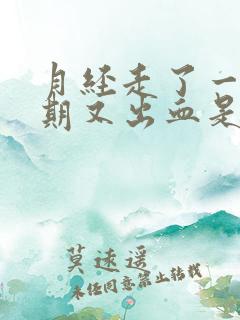 月经走了一
期又出血是
莫速遥
未任同意禁止转载